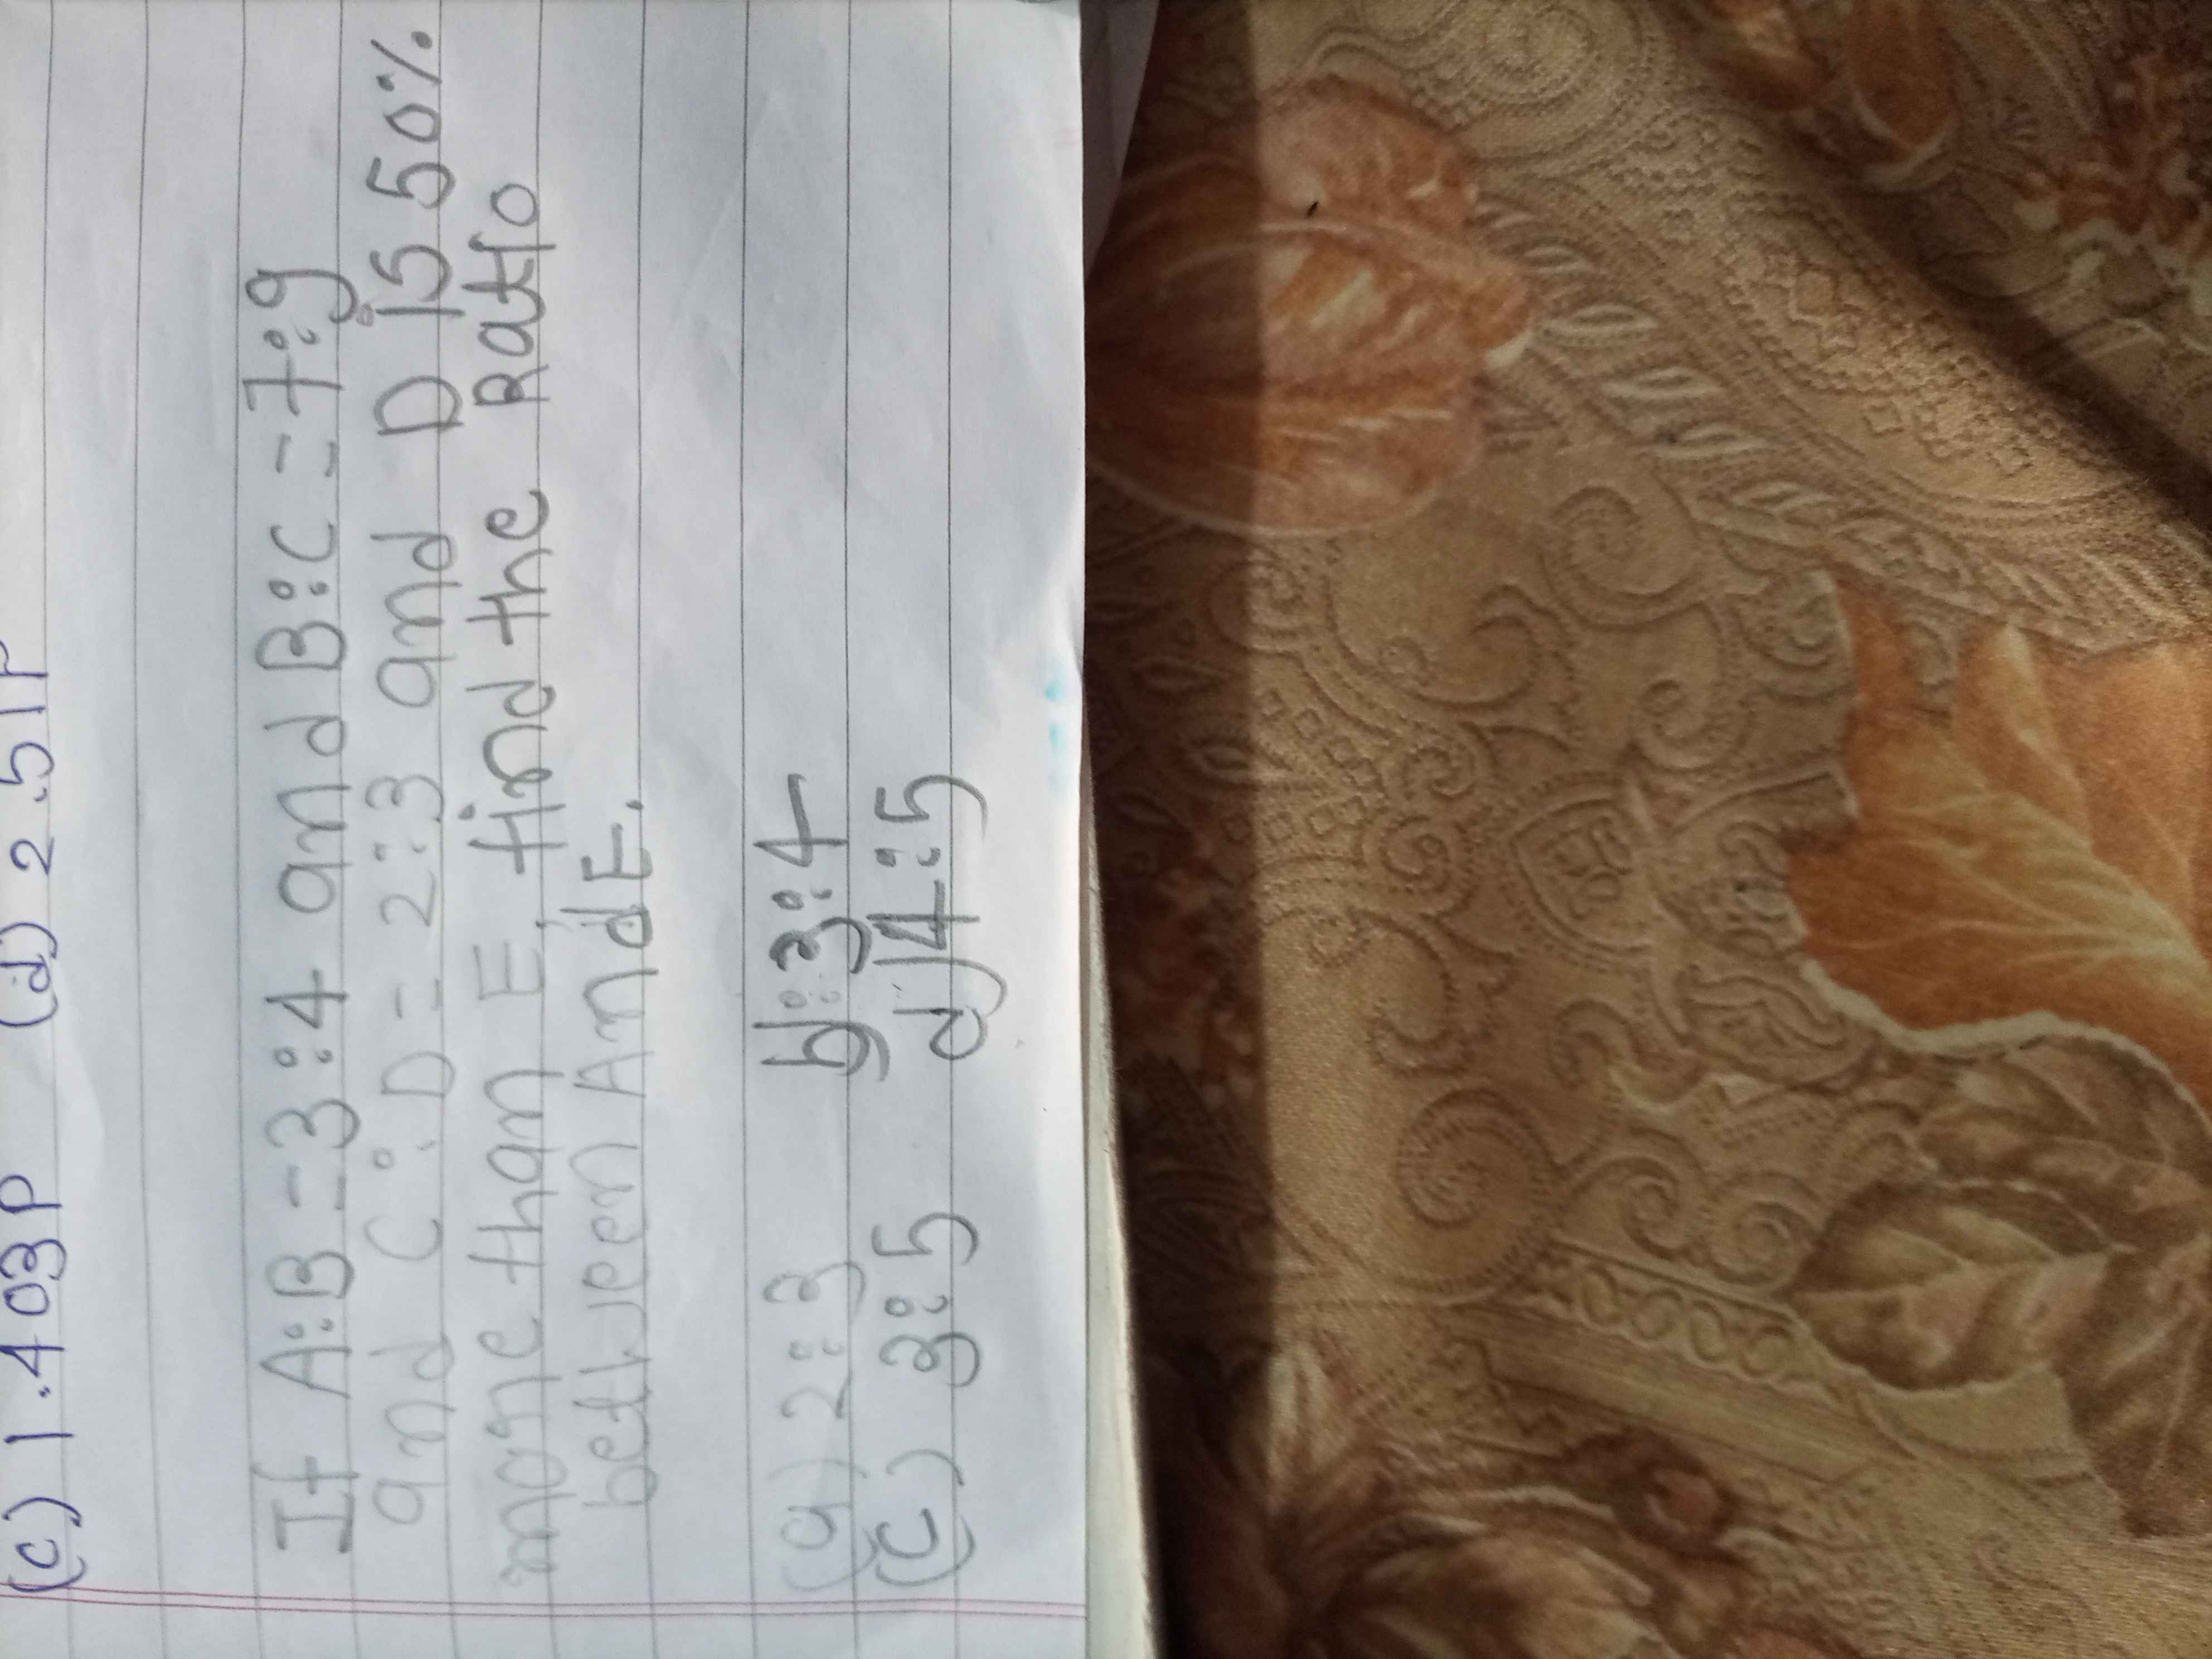 (c) 1.403P (d) 2.51P
If A:B = 3:4 and B:C = 7:9
and C:D = 2:3 and D is 50%
more than E, find the Ratio
between A and E.
(a) 2:3 b) 3:4
(C) 3:5 d) 4:5